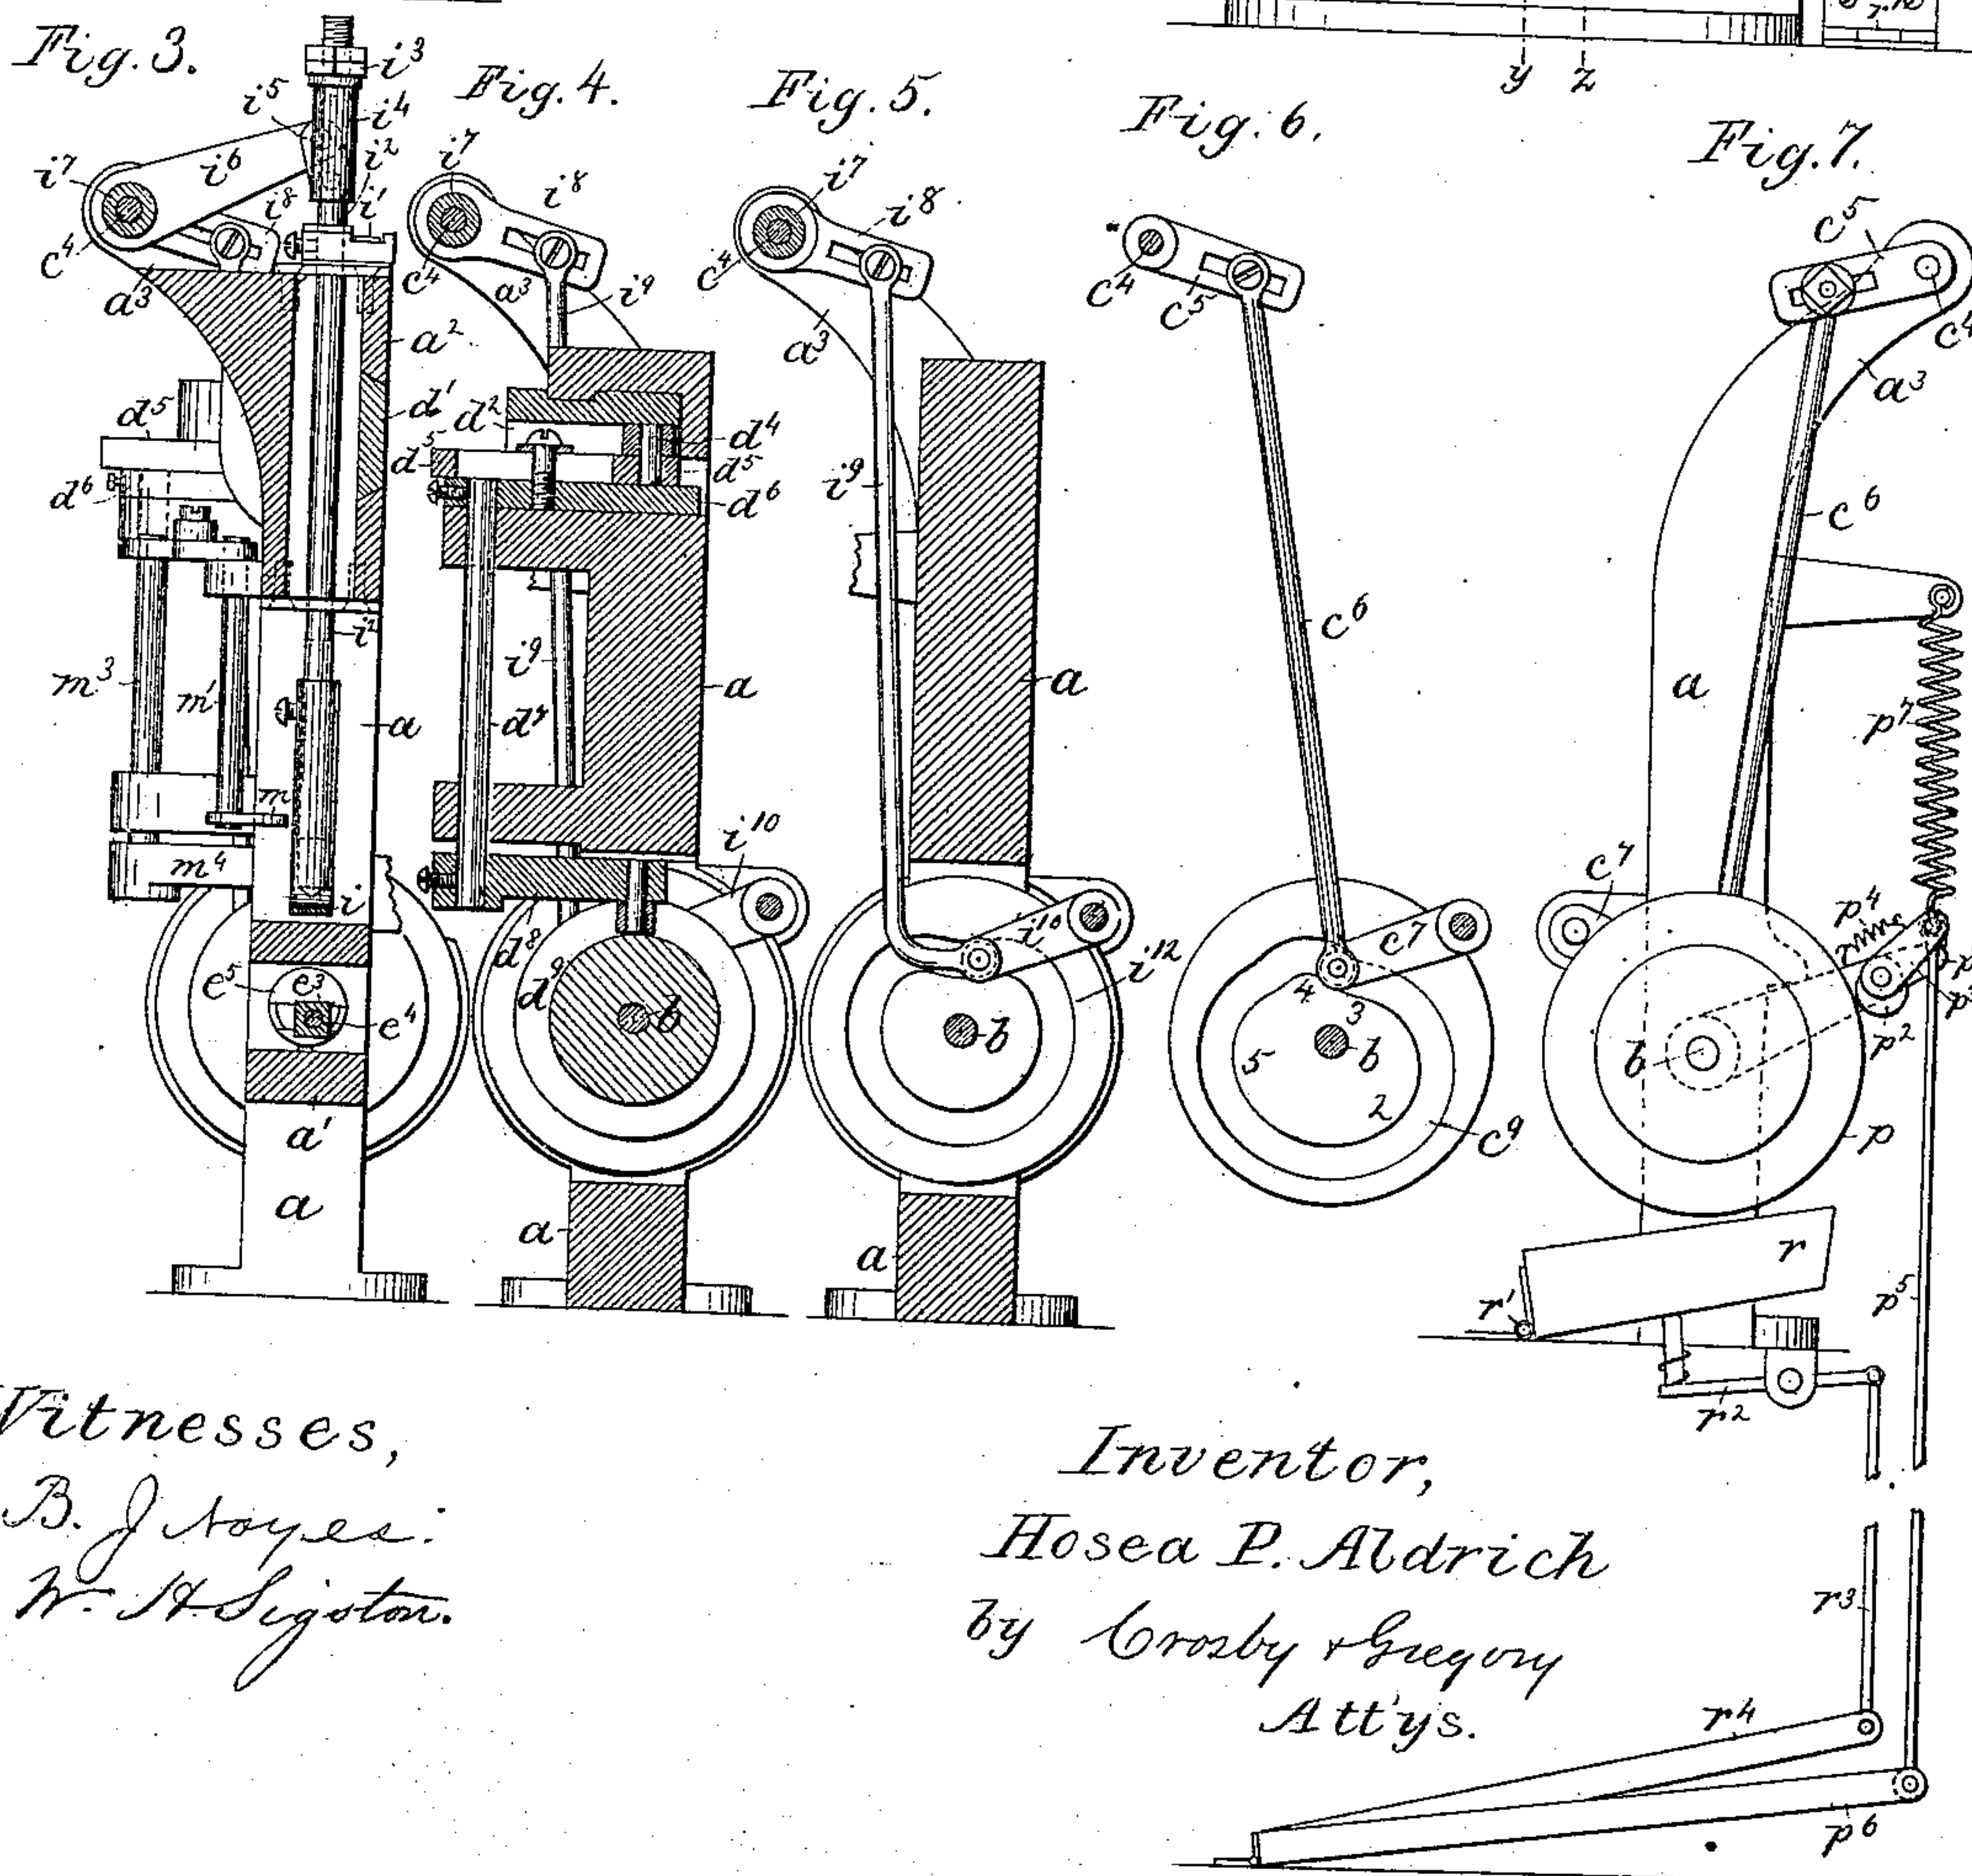 y z
Fig. 3.
i3
i5
i4
i7
i6
i2
i8
i'
c4
a3
a2
d'
d5
d6
i2
m3
m'
a
m
m4
i
e5
e3
e4
a'
a
Fig. 4.
i7
i8
c4
a3
i9
d2
d4
d5
d5
d6
i9
a
d7
i10
d8
d9
b
a
Fig. 5.
i7
i8
c4
a3
i9
a
i10
i12
b
a
Fig. 6.
c4
c5
c6
c7
4
3
5
b
2
c9
Fig. 7.
c5
c4
a3
c6
a
p7
c7
p4
p3
p2
b
p
r
r'
p5
r2
r3
r4
p6
Witnesses,
B. J. Noyes.
W. H. Sigston.
Inventor,
Hosea P. Aldrich
by Crosby & Gregory
Att'ys.